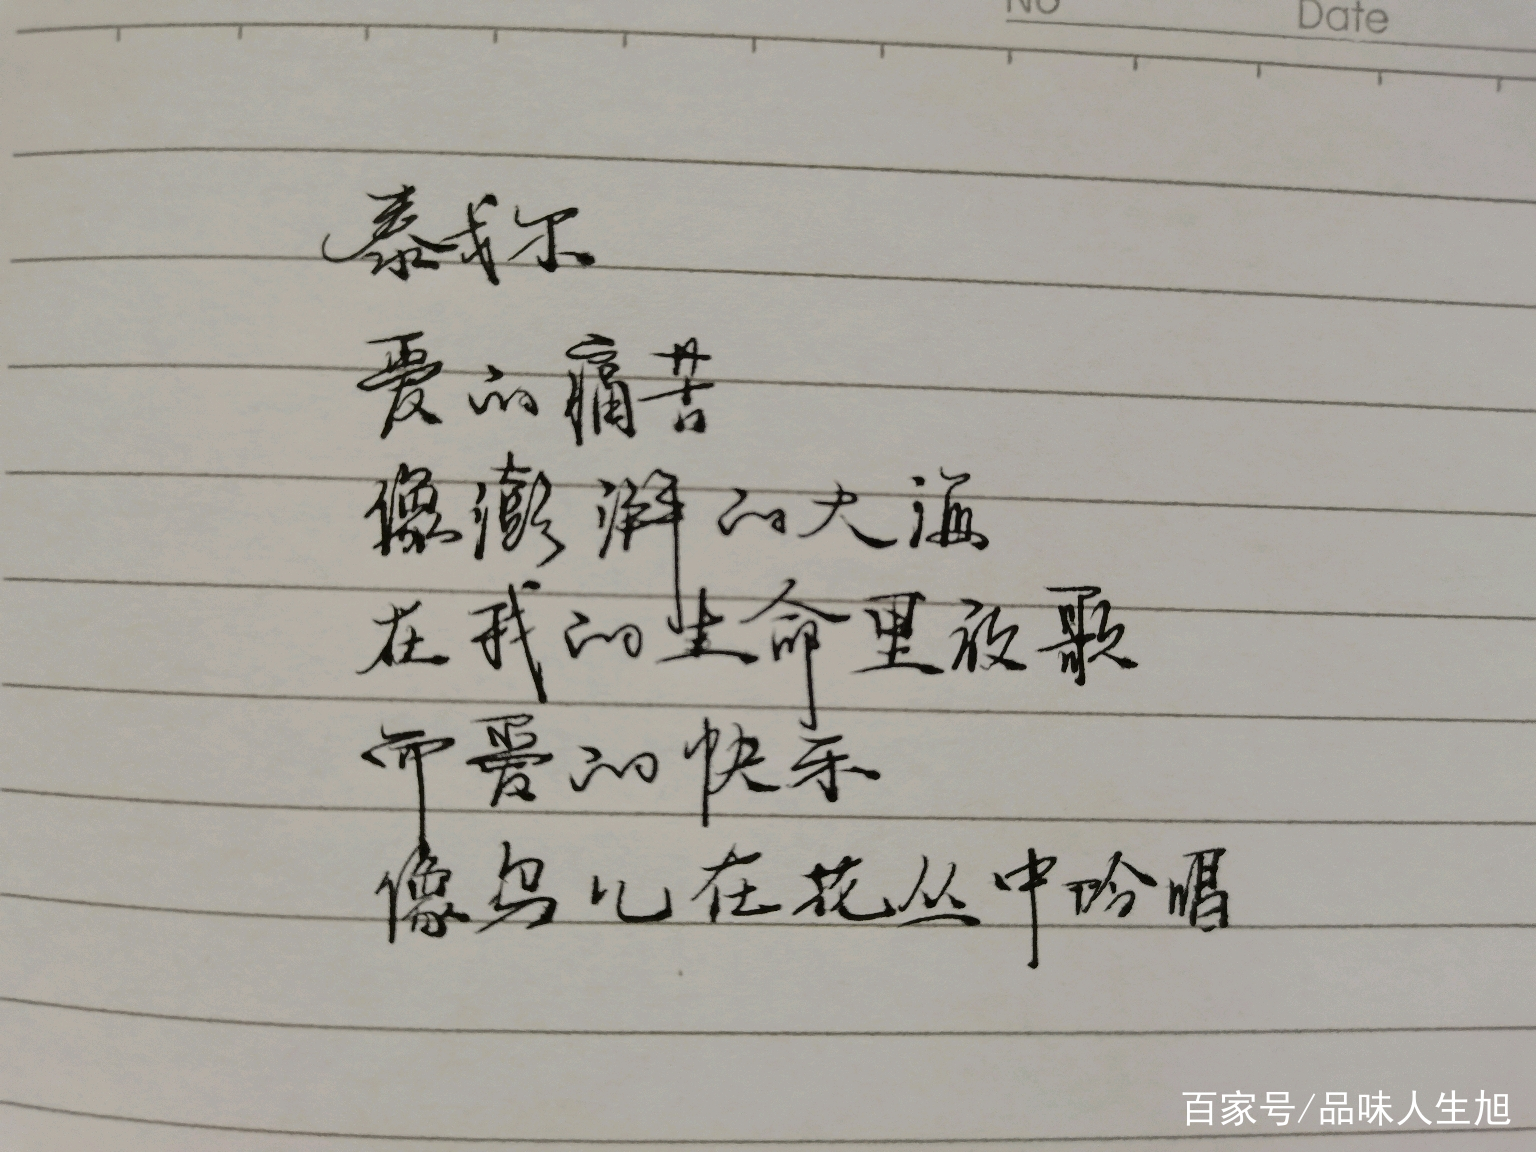 No Date
泰戈尔
爱的痛苦
像澎湃的大海
在我的生命里放歌
而爱的快乐
像鸟儿在花丛中吟唱
百家号/品味人生旭